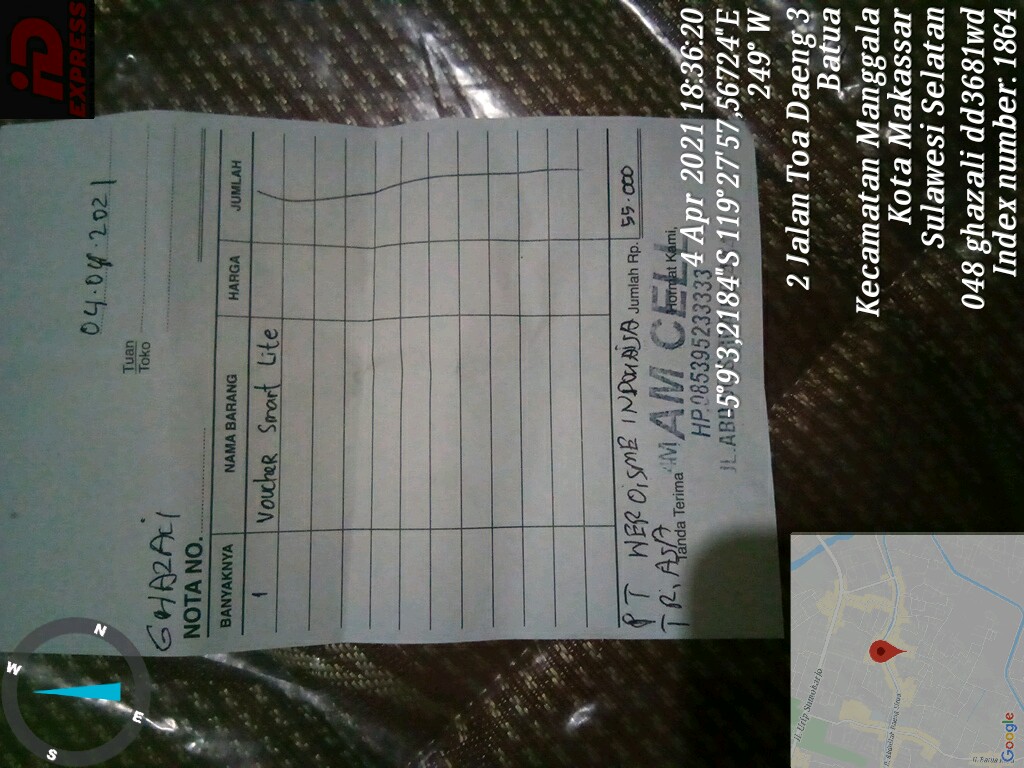 W
S
N
E
iD
EXPRESS
04.04.2021
Tuan
Toko
GHAZALI
NOTA NO.
BANYAKNYA NAMA BARANG HARGA JUMLAH
1 Voucher Smart Lite
PT HEROISME INDONAISA Jumlah Rp. 55.000
TRIASA
Tanda Terima Hormat Kami,
AM CELL
HP.085395233333
4 Apr 2021 18:36:20
-5°9'3,2184"S 119°27'57,56724"E
249° W
2 Jalan Toa Daeng 3
Batua
Kecamatan Manggala
Kota Makassar
Sulawesi Selatan
048 ghazali dd3681wd
Index number: 1864
Jl. Urip Sumoharjo
Google